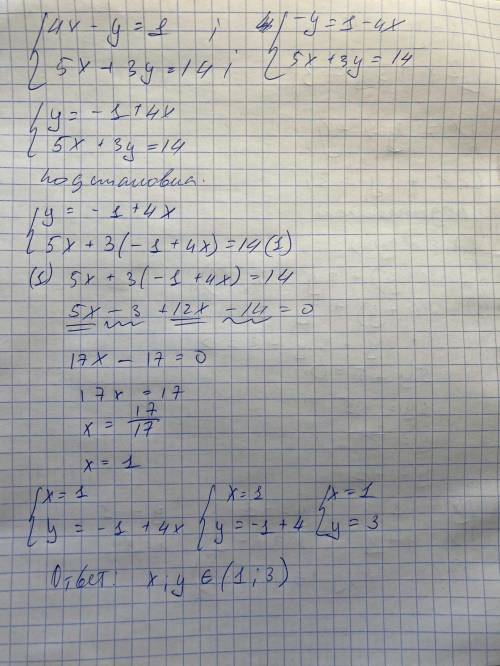 {4x - y = 1 ; {-y = 1 - 4x
{5x + 3y = 14 ; {5x + 3y = 14
{y = -1 + 4x
{5x + 3y = 14
подстановка.
{y = -1 + 4x
{5x + 3(-1 + 4x) = 14 (1)
(1) 5x + 3(-1 + 4x) = 14
5x - 3 + 12x - 14 = 0
17x - 17 = 0
17x = 17
x = 17/17
x = 1
{x = 1 {x = 1 {x = 1
{y = -1 + 4x {y = -1 + 4 {y = 3
Ответ: x ; y ∈ (1 ; 3)